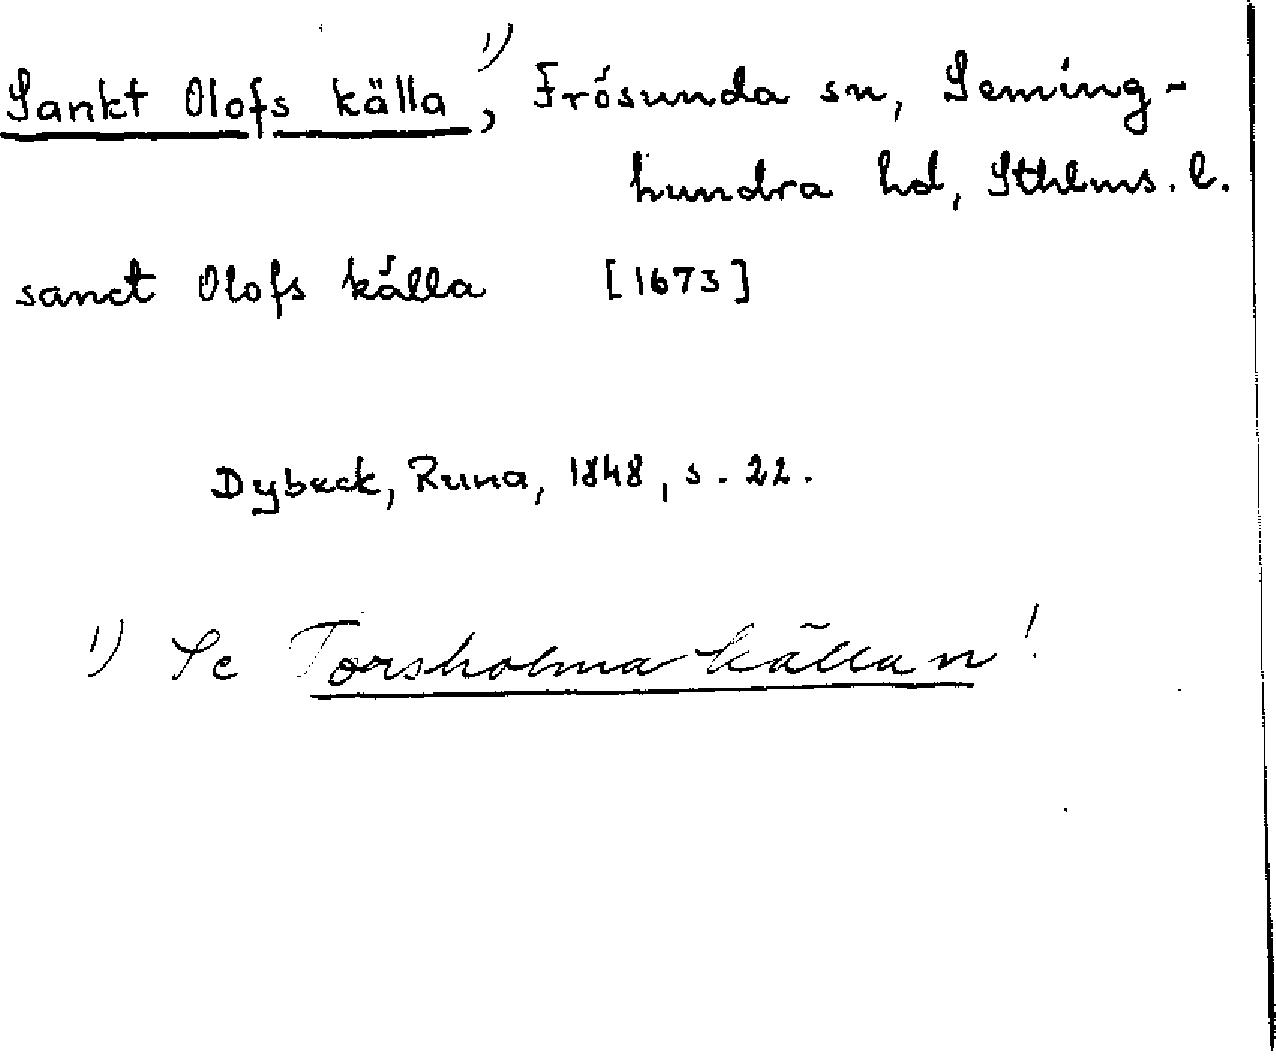 Sankt Olofs källa ¹⁾, Frösunda sn, Seming-
hundra hd, Sthlms. l.
sanct Olofs källa [1673]
Dybeck, Runa, 1848, s. 22.
1) Se Torsholmakällan!